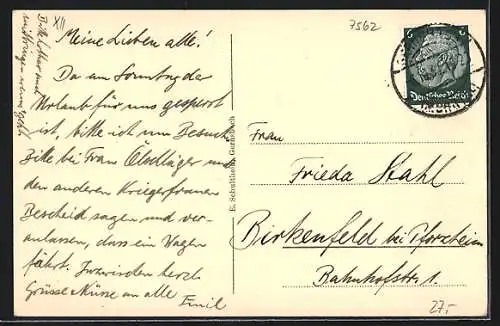 XII
7562
Meine Lieben alle!
Da am Sonntag der
Urlaub für uns gesperrt
ist, bitte ich um Besuch.
Bitte bei Frau Ölschläger und
den anderen Kriegerfrauen
Bescheid sagen und ver-
anlassen, dass ein Wagen
fährt. Inzwischen herzl.
Grüsse & Küsse an alle
Emil
E. Schultheiß, Gernsbach
Deutsches Reich
Frau
Frieda Stahl
Birkenfeld bei Pforzheim
Bahnhofstr. 1
27.-